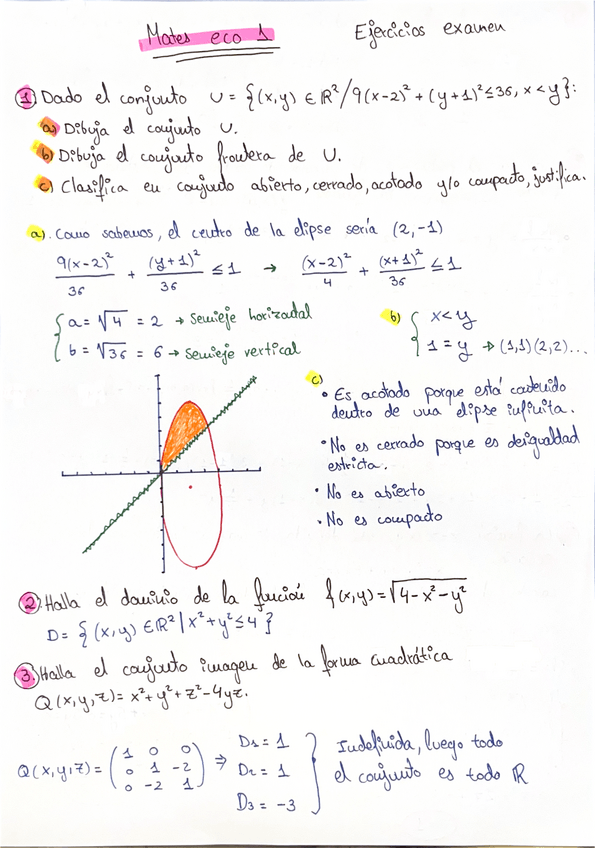 Mates eco 1
Ejercicios examen
1) Dado el conjunto U = {(x,y) ∈ R² / 9(x-2)² + (y+1)² ≤ 36, x < y}:
a) Dibuja el conjunto U.
b) Dibuja el conjunto frontera de U.
c) Clasifica en conjunto abierto, cerrado, acotado y/o compacto, justifica.
a). Como sabemos, el centro de la elipse sería (2,-1)
9(x-2)²/36 + (y+1)²/36 ≤ 1 → (x-2)²/4 + (x+1)²/36 ≤ 1
a = √4 = 2 → Semieje horizontal
b = √36 = 6 → Semieje vertical
b) { x < y
1 = y → (1,1)(2,2)...
c)
• Es acotado porque está contenido
dentro de una elipse infinita.
• No es cerrado porque es desigualdad
estricta.
• No es abierto
• No es compacto
2) Halla el dominio de la función f(x,y) = √4-x²-y²
D = {(x,y) ∈ R² | x²+y² ≤ 4}
3) Halla el conjunto imagen de la forma cuadrática
Q(x,y,z) = x²+y²+z²-4yz.
Q(x,y,z) = (1 0 0
0 1 -2
0 -2 1) ⇒
D1 = 1
D2 = 1
D3 = -3
Indefinida, luego todo
el conjunto es todo R